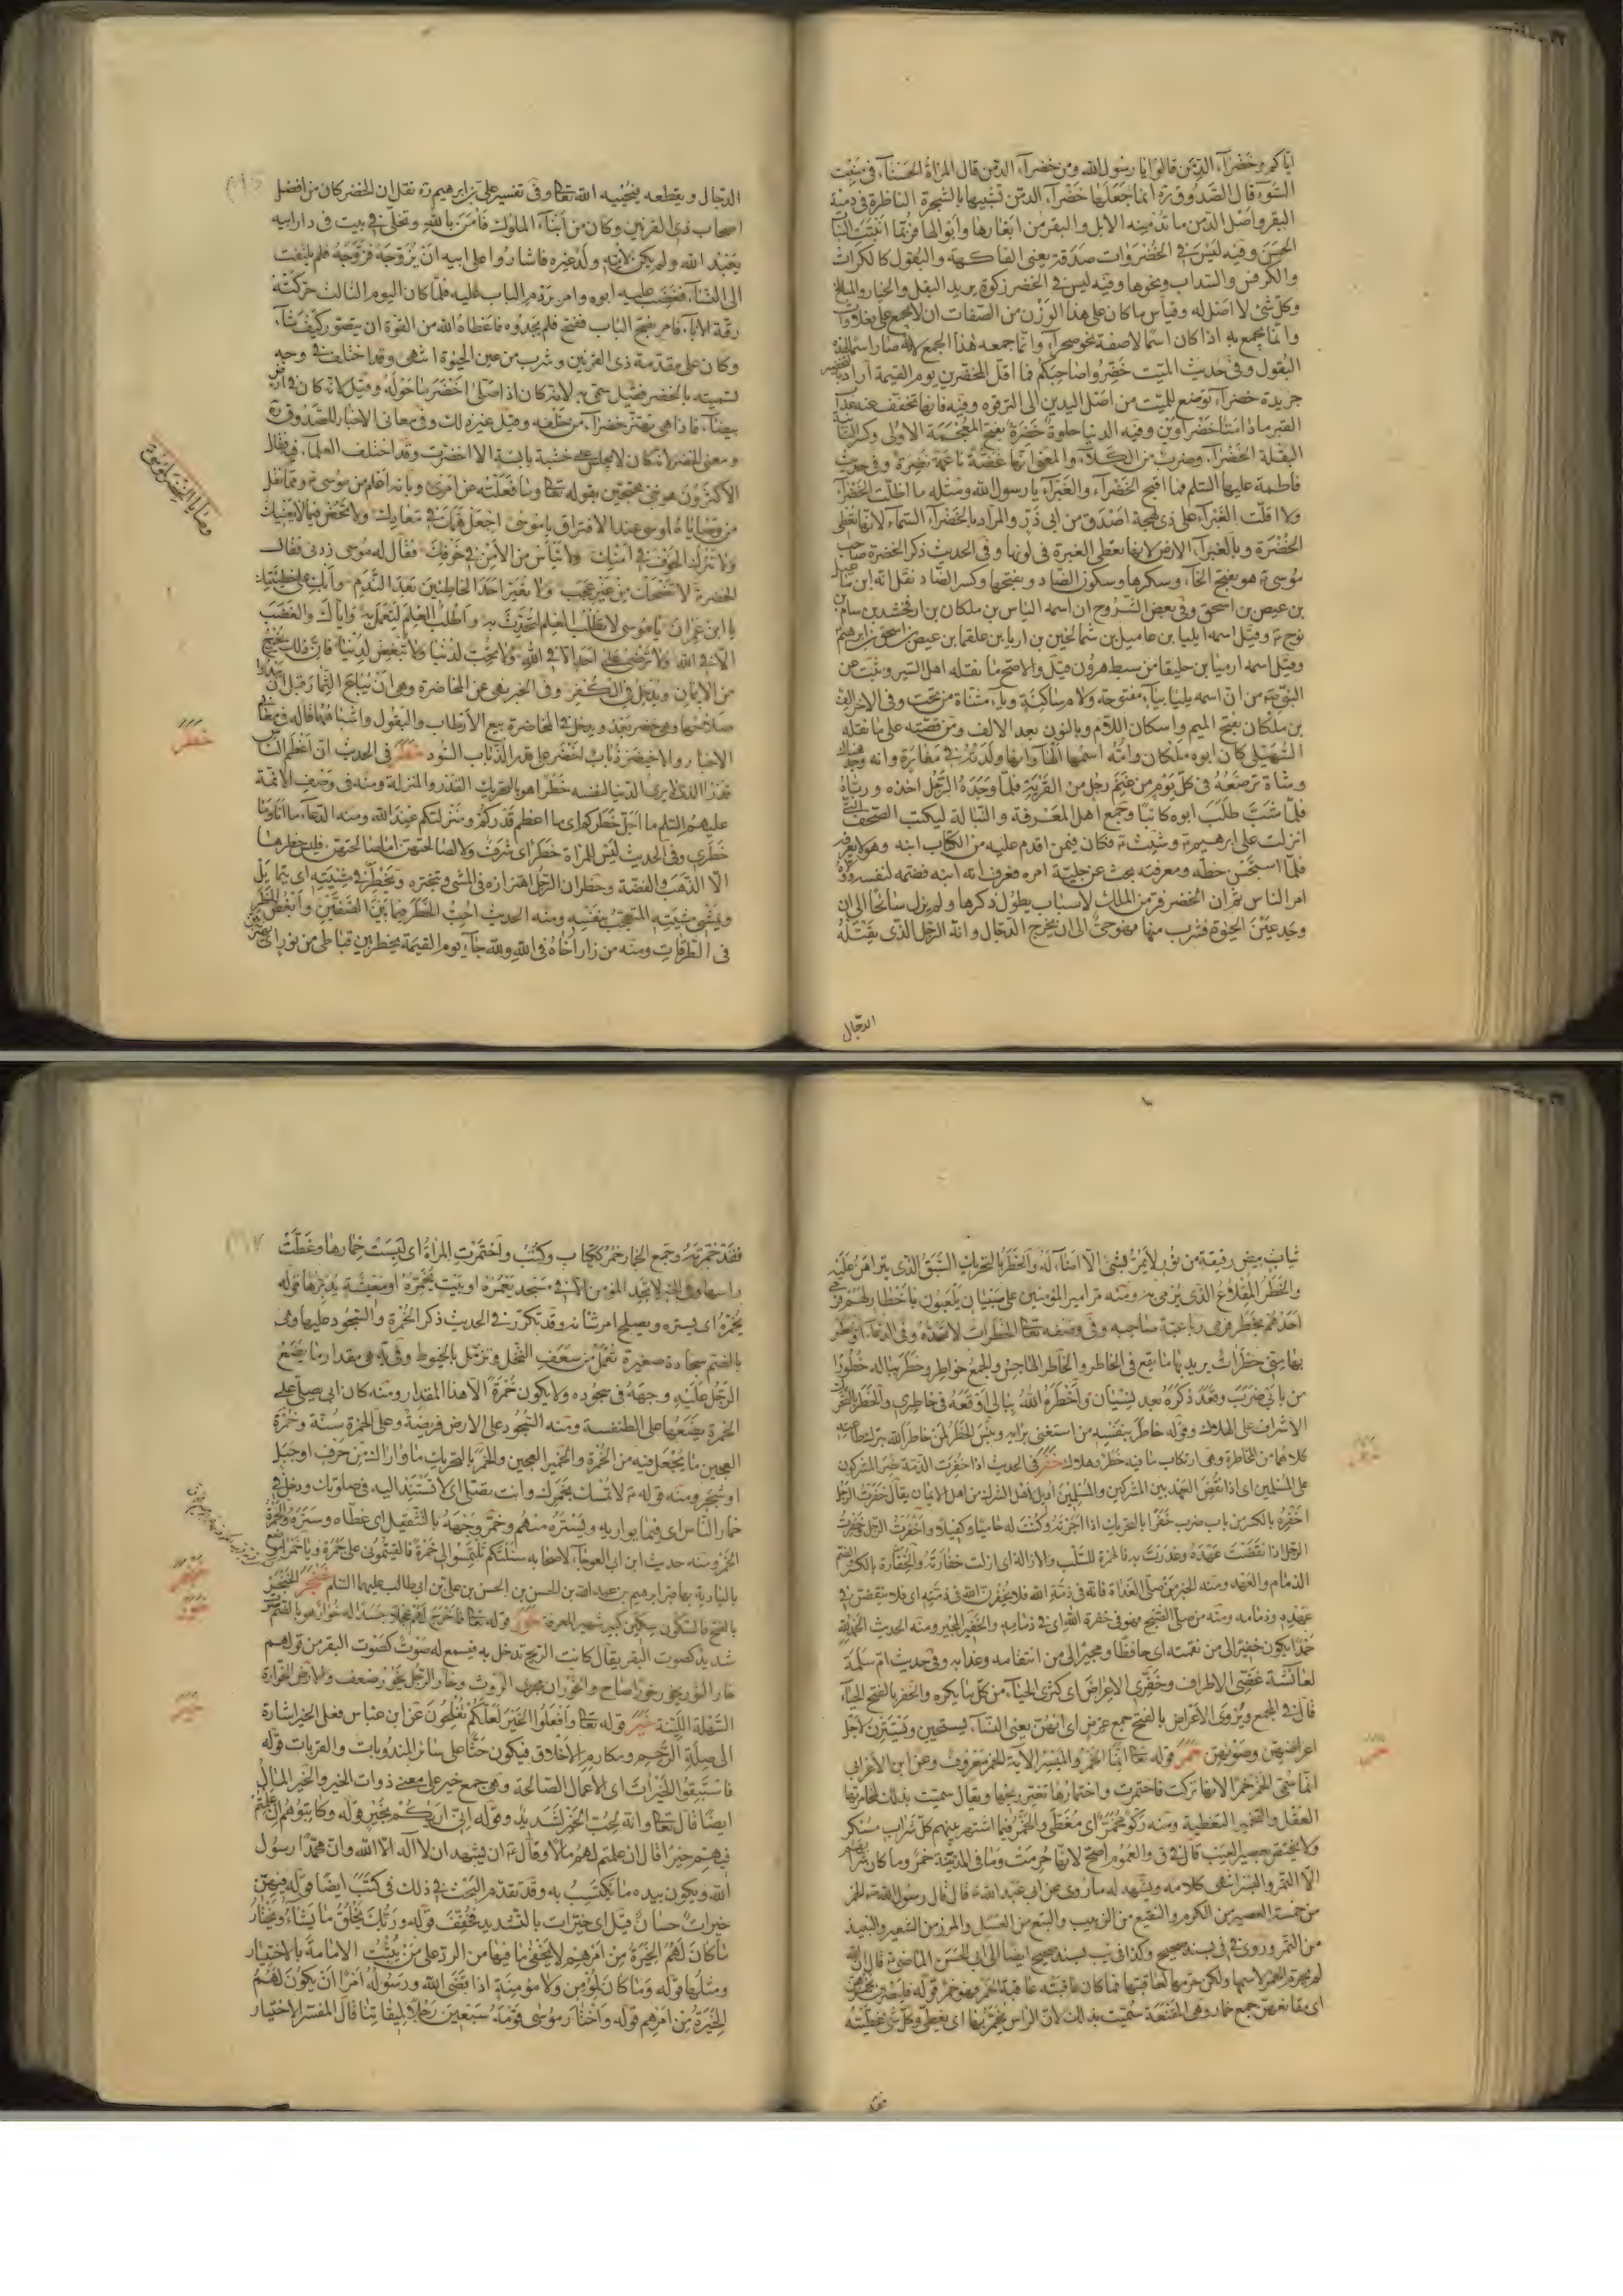 اياكم وخضراء الدمن قالوا يا رسول الله ومن خضراء الدمن قال المراة الحسناء في منبت
السوء قال الصدوق ره انما جعلها خضراء الدمن تشبيها بالشجرة الناظرة في دمنة
البقر واصل الدمن ما تدمنه الابل والبقر من ابعارها وابوالها فربما انبتت النبا
الحسن وفيه ليس في الخضروات صدقة يعني الفاكهة والبقول كالكراث
والكرفس والسداب ونحوها وفيه ليس في الخضر زكوة يريد البقل والخيار
وكل شئ لا اصل له وقياس ما كان على هذا الوزن من الصفات ان لا يجمع على فعلاوات
وانما يجمع به اذا كان اسما لا صفة نحو صحراء وانما جمعه هذا الجمع لانه صار اسما لهذه
البقول وفي حديث الميت خضروا صاحبكم فما اقل المخضرين يوم القيمة اراد بالتخضير
جريدة خضراء توضع للميت من اصل اليدين الى الترقوه وفيه فانها تخفف عنه عذاب
القبر ما دامتا خضراوين وفيه الدنيا حلوة خضرة بفتح المعجمة الاولى وكسر الثانية
البقلة الخضراء وضرب من الكلاء والمعنى انها غضة ناعمة نضرة وفي حديث
فاطمة عليها السلم فما اقبح الخضراء والغبراء يا رسول الله ومثله ما اظلت الخضراء
ولا اقلت الغبراء على ذي لهجة اصدق من ابي ذر والمراد بالخضراء السماء لانها تعطى
الخضرة وبالغبراء الارض لانها تعطى الغبرة في لونها وفي الحديث ذكر الخضرة صاحب
موسى ع هو بفتح الخاء وسكرها وسكون الضاد وبفتحها وكسر الضاد نقل انه ابن
بن عيص بن اسحق وفي بعض الشروح ان اسمه الياس بن ملكان بن ارفخشد بن سام بن
نوح ع وقيل اسمه ايليا بن عاميل بن شمالخين بن اريا بن علقما بن عيص بن اسحق بن ابرهيم
وقيل اسمه ارميا بن حليقا من سبط هرون قيل والاصح ما نقله اهل السير وثبت عن
النبي ص من ان اسمه بليا بباء مفتوحة ولام ساكنة وياء مثناة من تحت وفي الاخر الف
بن ملكان بفتح الميم واسكان اللام وبالنون بعد الالف ومن قصته على ما نقله
السهيلي كان ابوه ملكا وان امه اسمها الها وانها ولدته في مغارة وانه وجد هناك
وشاة ترضعه في كل يوم من غنم رجل من القرية فلما وجده الرجل اخذه ورباه
فلما شب طلب ابوه كاتبا وجمع اهل المعرفة والنبالة ليكتب الصحف التي
انزلت على ابرهيم ع وشيث ع فكان فيمن اقدم عليه من الكتاب ابنه وهو لا يعرفه
فلما استحسن خطه ومعرفته بحث عن جلية امره فعرف انه ابنه فضمه لنفسه وولاه
امر الناس ثم ان الخضر فر من الملك لاسباب يطول ذكرها ولم يزل سائحا الى ان
وجد عين الحيوة فشرب منها فهو حي الى ان يخرج الدجال وانه الرجل الذي يقتله
الدجال
الدجال ويقطعه ثم يحييه الله تعالى وفي تفسير علي بن ابرهيم ره نقل ان الخضر كان من افضل
اصحاب ذي القرنين وكان من ابناء الملوك فامن بالله وتخلى في بيت في دار ابيه
يعبد الله ولم يكن لابيه ولد غيره فاشاروا على ابيه ان يزوجه فزوجه فلم يلتفت
الى النساء فغضب عليه ابوه وامر بردم الباب عليه فلما كان اليوم الثالث حركته
رقة الاباء فامر بفتح الباب ففتح فلم يجدوه فاعطاه الله من القوة ان يتصور كيف شاء
وكان على مقدمة ذي القرنين وشرب من عين الحيوة انتهى وقد اختلف في وجه
تسميته بالخضر فقيل سمي به لانه كان اذا صلى اخضر ما حوله وقيل لانه كان في ارض
بيضاء فاذا هي تهتز خضراء من خلفه وقيل غير ذلك وفي معاني الاخبار للصدوق ره
ومعنى الخضر انه كان لا يجلس على خشبة يابسة الا اخضرت وقد اختلف العلماء فيه فقال
الاكثرون هو نبي محتجين بقوله تعالى وما فعلته عن امري وبانه اعلم من موسى ع ومما نقل
من وصاياه لموسى عند الافتراق يا موسى اجعل همك في معادك ولا تخض فيما لا يعنيك
ولا تترك الخوف في امنك ولا تياس من الامن في خوفك فقال له موسى زدني فقال
الخضر لا تضحك من غير عجب ولا تعير احدا الخاطئين بعد الندم وابك على خطيئتك
يا ابن عمران يا موسى لا تطلب العلم لتحدث به واطلب العلم لتعمل به واياك والغضب
الا في الله ولا ترضى على احد الا في الله ولا تحب لدنيا ولا تبغض لدنيا فان ذلك يخرج
من الايمان ويدخل في الكفر وفي الخبر نهى عن المخاضرة وهي ان يباع الثمار قبل ان يبدو
صلاحها وهي خضر بعد ويدخل في المخاضرة بيع الارطاب والبقول واشباهها قاله في معاني
الاخبار والاخيضر ذباب اخضر على قدر الذباب السود خطر في الحديث ان اعظم الناس
قدرا الذي لا يرى الدنيا لنفسه خطرا هو بالتحريك القدر والمنزلة ومنه في وصف الائمة
عليهم السلم ما اجل خطركم اي ما اعظم قدركم ومنزلتكم عند الله ومنه الدعاء ما انا وما
خطري وفي الحديث ليس للمراة خطر اي شرف ولا لصالحتهن اما لصالحتهن فليس خطرها
الا الذهب والفضة وخطران الرجل اهتزازه في المشي وتبختره ويخطر في مشيته اي يتمايل
ويمشي مشية المتعجب بنفسه ومنه الحديث احب الخطر فيما بين الصفين وابغض الخطر
في الطرقات ومنه من زار اخاه في الله ولله جاء يوم القيمة يخطر بين قباطي من نور اي
وصايا الخضر لموسى ع
خطر
ثياب بيض رقيقة من نور لا يمر بشئ الا اضاء له والخطر بالتحريك السبق الذي يتراهن عليه
والخطر المقلاع الذي يرمى به ومنه مر امير المؤمنين على صبيان يلعبون باخطار لهم فرمى
احدهم بخطره فرمى رباعية صاحبه وفي وصفه تعالى الخطرات لا تحده وفي الدعاء
بها مني خطرات يريد بها ما يقع في الخاطر والخاطر الهاجس والجمع خواطر وخطر بباله خطورا
من بابي ضرب وقعد ذكره بعد نسيان واخطره الله ببالي اوقعه في خاطري والخطر بالتحريك
الاشراف على الهلاك وقوله خاطر بنفسه من استغنى برايه وبئس الخطر لمن خاطر الله بترك طاعته
كلاهما من المخاطرة وهي ارتكاب ما فيه خطر وهلاك خفر في الحديث اذا خفرت الذمة نصر المشركون
على المسلمين اي اذا نقض العهد بين المشركين والمسلمين اديل اهل الشرك من اهل الايمان يقال خفرت الرجل
اخفره بالكسر من باب ضرب خفرا بالتحريك اذا اجرته وكنت له حاميا وكفيلا واخفرت الرجل وخفرت
الرجل اذا نقضت عهده وغدرت به فالهمزة للسلب والازالة اي ازلت خفارته والخفارة بالكسر والضم
الذمام والعهد ومنه الخبر من صلى الغداة فانه في ذمة الله فلا يخفرن الله في ذمته اي فلا ينقضن في
عهده وذمامه ومنه من صلى الصبح فهو في خفرة الله اي في ذمامه والخفير المجير ومنه الحديث الحمد لله
حمدا يكون خفيرا لي من نقمته اي حافظا ومجيرا لي من انتقامه وعذابه وفي حديث ام سلمة
لعائشة غضي الاطراف وخفري الاعراض اي كثرى الحياء من كل ما يكره والخفر بالفتح الحياء
قال في المجمع ويروى الاعراض بالفتح جمع عرض اي انهن يعني النساء يستحيين ويتسترن لاجل
اعراضهن وصونهن خمر قوله تعالى انما الخمر والميسر الاية الخمر معروف وعن ابن الاعرابي
انما سمي الخمر خمرا لانها تركت فاختمرت واختمارها تغير ريحها ويقال سميت بذلك لمخامرتها
العقل والتخمير التغطية ومنه ركو مخمر اي مغطى والخمر فيما اشتهر بينهم كل شراب مسكر
ولا يختص بعصير العنب قال في ق والعموم اصح لانها حرمت وما في المدينة خمر وما كان شرابهم
الا التمر والبسر انتهى كلامه ويشهد له ما روي عن ابي عبد الله ع قال قال رسول الله ص الخمر
من خمسة العصير من الكرم والنقيع من الزبيب والبتع من العسل والمزر من الشعير والنبيذ
من التمر وروى في في بسند صحيح وكذا في يب بسند صحيح ايضا الى ابي الحسن الماضي ع قال ان الله
لم يحرم الخمر لاسمها ولكن حرمها لعاقبتها فما كان عاقبته عاقبة الخمر فهو خمر قوله فليضربن بخمرهن
اي مقانعهن جمع خمار وهي المقنعة سميت بذلك لان الراس يخمر بها اي يغطى وكل شئ غطيته
فقد
خمر
فقد خمرته وجمع الخمار خمر ككتاب وكتب واختمرت المراة اي لبست خمارها وغطت
راسها وفي الخبر لا تجد المؤمن الا في مسجد يعمره او بيت يخمره او معيشة يدبرها قوله
يخمره اي يستره ويصلح امر شانه وقد تكرر في الحديث ذكر الخمرة والسجود عليها وهي
بالضم سجادة صغيرة تعمل من سعف النخل وتزمل بالخيوط وفي يه هي مقدار ما يضع
الرجل عليه وجهه في سجوده ولا يكون خمرة الا هذا المقدار ومنه كان ابي يصلي على
الخمرة يضعها على الطنفسة ومنه السجود على الارض فريضة وعلى الخمرة سنة وخمرة
العجين ما يجعل فيه من الخمرة والخمير العجين والخمر بالتحريك ما واراك من خزف او جبل
او شجر ومنه قوله ع لا تمسك بخمرك وانت تصلي اي لا تستند اليه في صلوتك ودخل في
خمار الناس اي فيما يواريه ويستره منهم وخمر وجهه بالتثقيل اي غطاه وستره والخمرة
الخمر ومنه حديث ابن ابي العوجاء لاصحابه سئلتكم تلتمسوا لي خمرة فالقيتموني على جمرة وباخمرا موضع
بالبادية بها قبر ابرهيم بن عبد الله بن الحسن بن الحسن بن علي بن ابي طالب عليهما السلم خنجر الخنجر
بالفتح فالسكون سكين كبير شهير المعرفة خور قوله تعالى فاخرج لهم عجلا جسدا له خوار هو بالضم صوت
شديد كصوت البقر يقال كانت الريح تدخل به فيسمع له صوت كصوت البقر من قولهم
خار الثور يخور خورا صاح والخوران مجرى الروث وخار الرجل يخور ضعف والارض الخوارة
السهلة اللينة خير قوله تعالى وافعلوا الخير لعلكم تفلحون عن ابن عباس فعل الخير اشارة
الى صلة الرحم ومكارم الاخلاق فيكون حثا على سائر المندوبات والقربات قوله
فاستبقوا الخيرات اي الاعمال الصالحة وهي جمع خير على معنى ذوات الخير والخير المال
ايضا قال تعالى وانه لحب الخير لشديد وقوله اني اريكم بخير قوله وكاتبوهم ان علمتم
فيهم خيرا قال ان علمتم لهم مالا وقال ع ان يشهد ان لا اله الا الله وان محمدا رسول
الله ويكون بيده ما يكتسب به وقد تقدم البحث في ذلك في كتب ايضا قوله فيهن
خيرات حسان قيل اي خيرات بالتشديد فخفف قوله وربك يخلق ما يشاء ويختار
ما كان لهم الخيرة من امرهم لا يخفى ما فيها من الرد على من يثبت الامامة بالاختيار
ومثلها قوله وما كان لمؤمن ولا مؤمنة اذا قضى الله ورسوله امرا ان يكون لهم
الخيرة من امرهم قوله واختار موسى قومه سبعين رجلا لميقاتنا قال المفسر الاختيار
خنجر
خور
خير